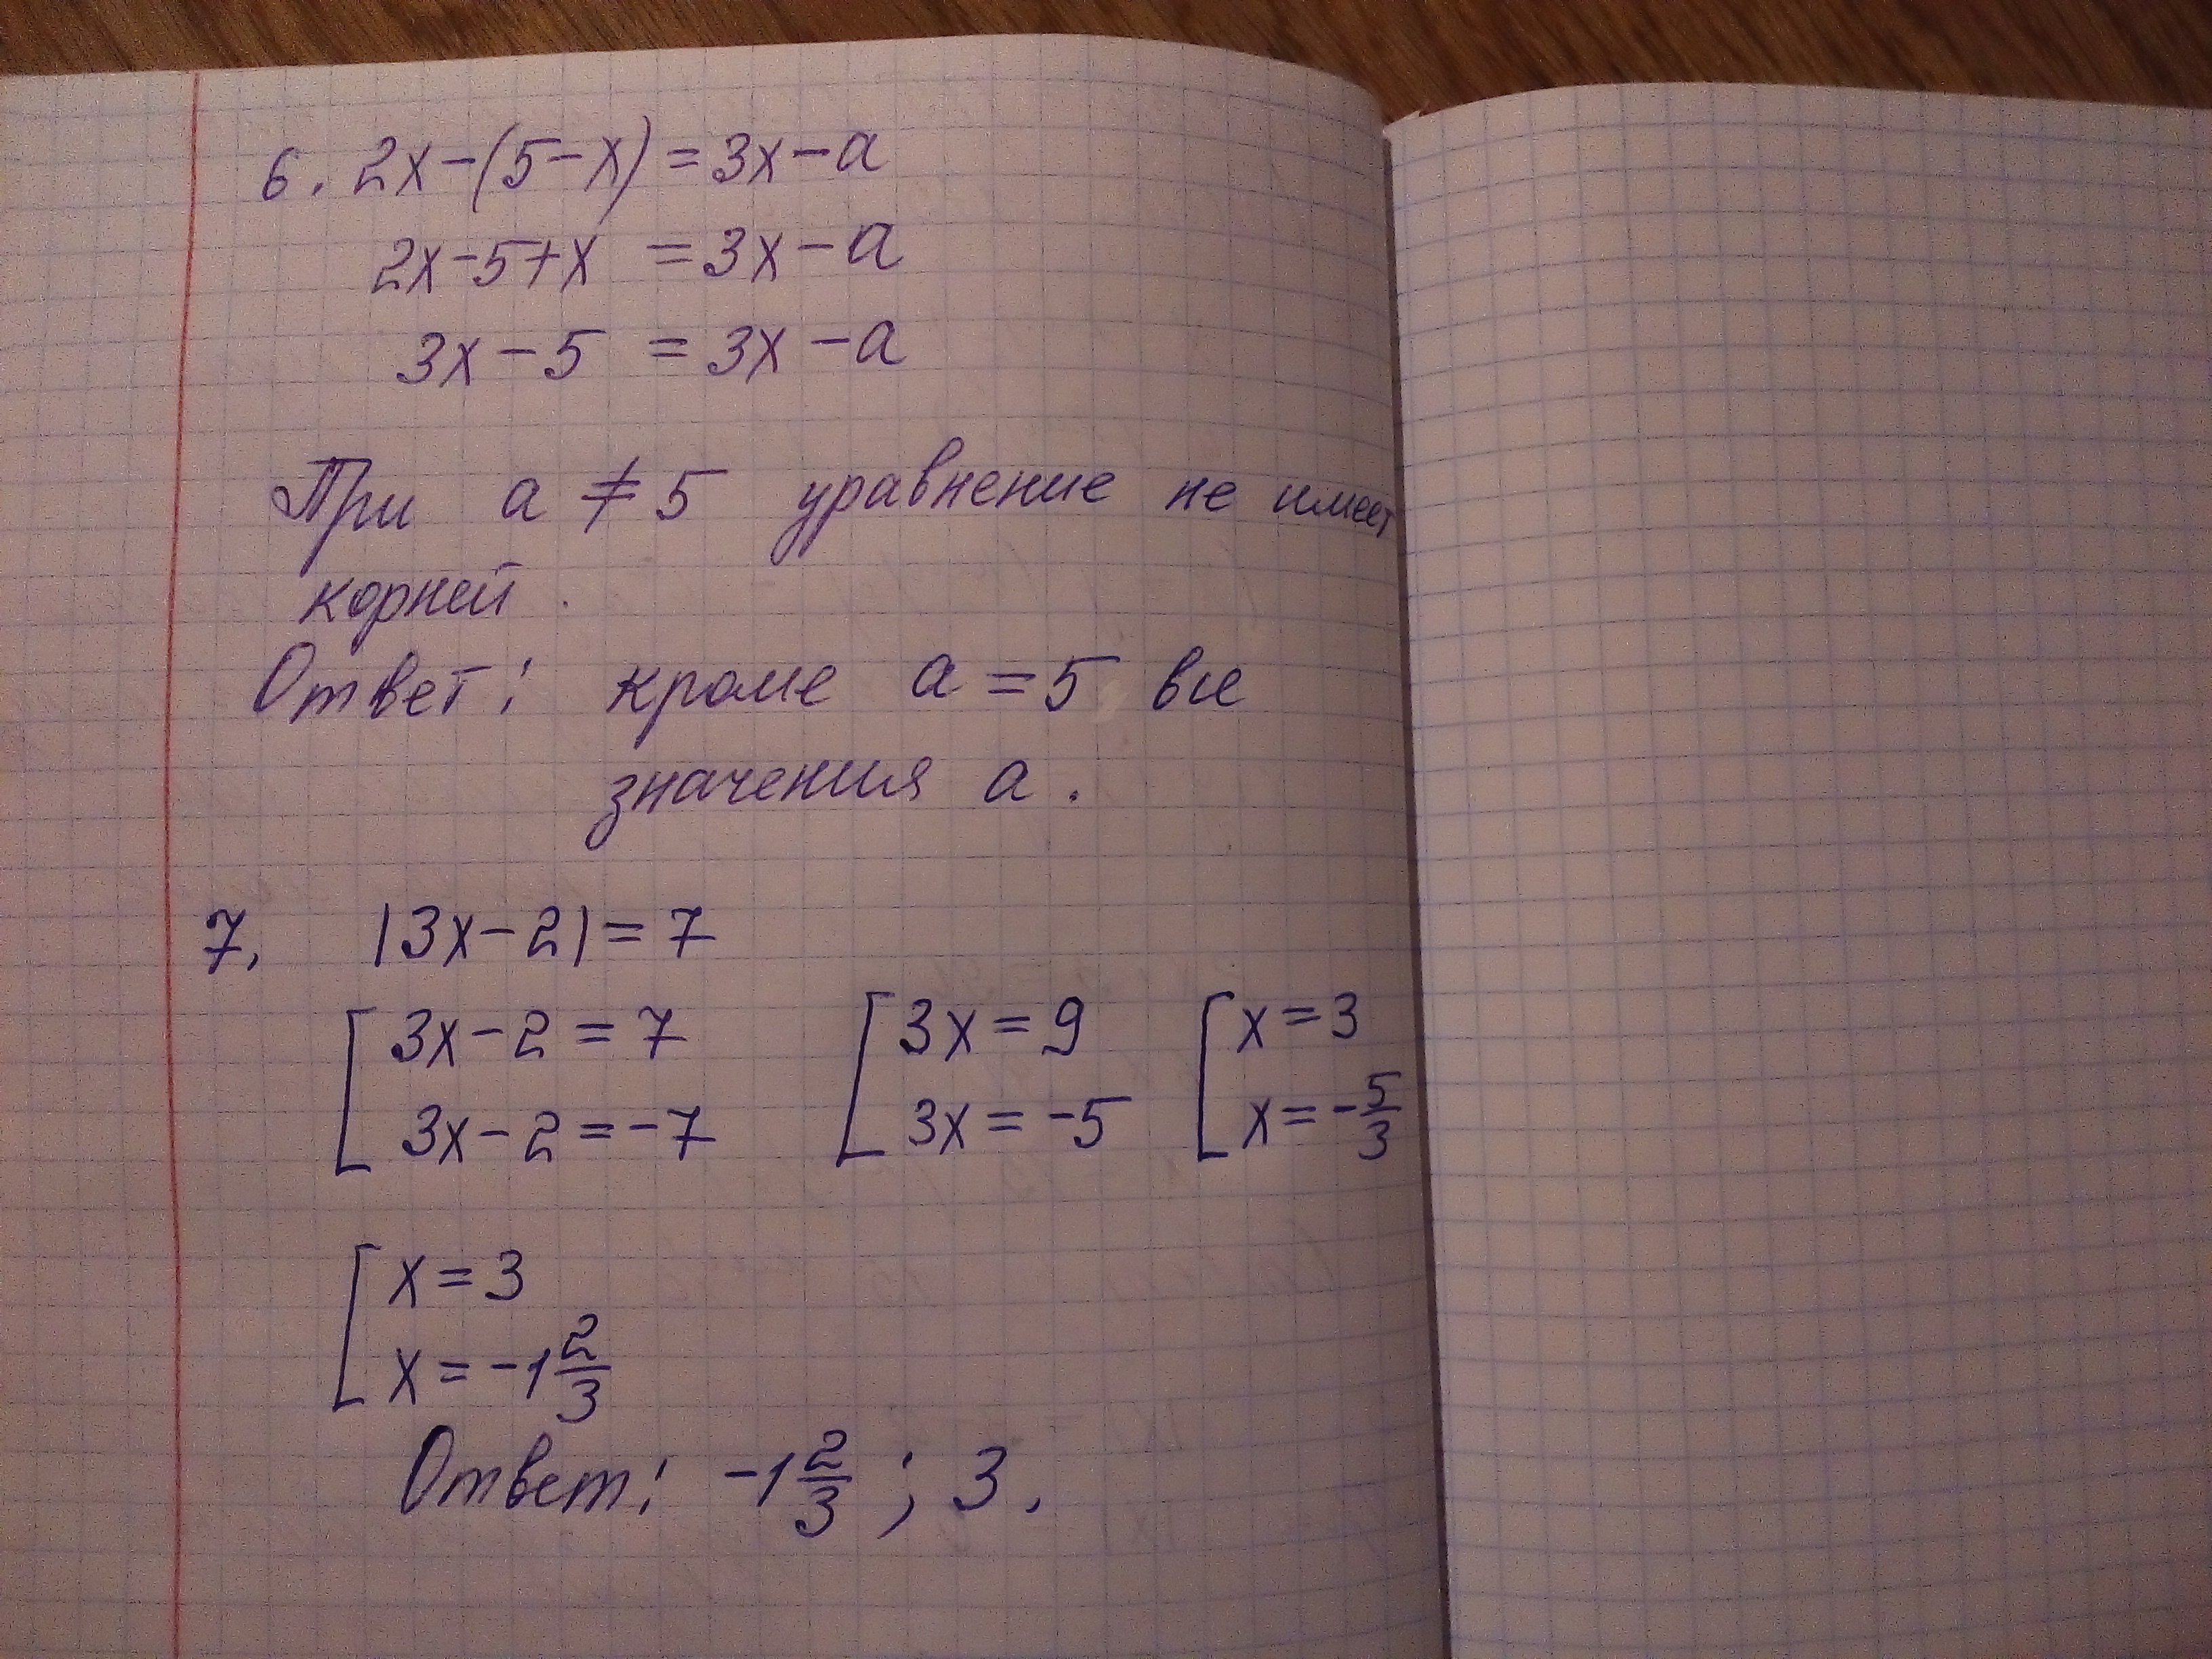 6. 2x-(5-x)=3x-a
2x-5+x =3x-a
3x-5 =3x-a
При a ≠ 5 уравнение не имеет
корней.
Ответ: кроме a=5 все
значения a.
7. |3x-2|=7
[3x-2=7 [3x=9 [x=3
3x-2=-7 3x=-5 x=-5/3
[x=3
x=-1 2/3
Ответ: -1 2/3; 3.